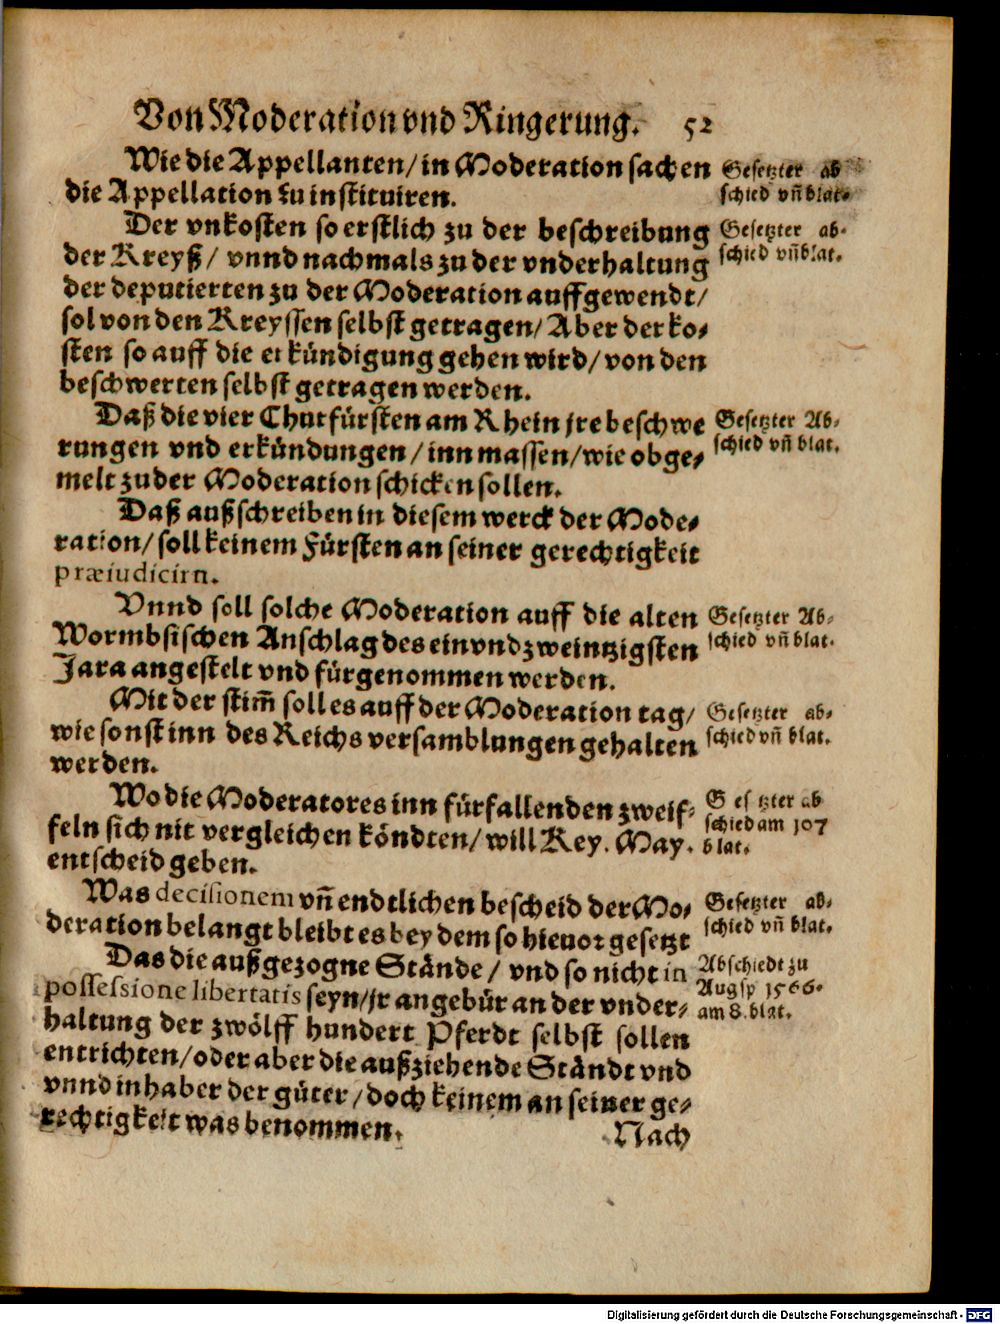 Von Moderation vnd Ringerung. 52
Wie die Appellanten/ in Moderation sachen
die Appellation zu instituiren.
Gesetzter ab
schied vñ blat.
Der vnkosten so erstlich zu der beschreibung
der Kreyß/ vnnd nachmals zu der vnderhaltung
der deputierten zu der Moderation auffgewendt/
sol von den Kreyssen selbst getragen/ Aber der ko-
sten so auff die erkündigung gehen wird/ von den
beschwerten selbst getragen werden.
Gesetzter ab-
schied vñ blat.
Daß die vier Churfürsten am Rhein jre beschwe
rungen vnd erkündungen/ inn massen/ wie obge-
melt zu der Moderation schicken sollen.
Gesetzter Ab-
schied vñ blat.
Daß außschreiben in diesem werck der Mode-
ration/ soll keinem Fürsten an seiner gerechtigkeit
præiudicirn.
Vnnd soll solche Moderation auff die alten
Wormbsischen Anschlag des ein vnd zweintzigsten
Jara angestelt vnd fürgenommen werden.
Gesetzter Ab-
schied vñ blat.
Mit der stim̃ soll es auff der Moderation tag/
wie sonst inn des Reichs versamblungen gehalten
werden.
Gesetzter ab-
schied vñ blat.
Wo die Moderatores inn fürfallenden zweif-
feln sich nit vergleichen köndten/ will Key. May.
entscheid geben.
Gesetzter ab
schied am 107
blat.
Was decisionem vñ endtlichen bescheid der Mo-
deration belangt bleibt es bey dem so hieuor gesetzt
Gesetzter ab-
schied vñ blat.
Das die außgezogne Stände/ vnd so nicht in
possessione libertatis seyn/ jr angebür an der vnder-
haltung der zwölff hundert Pferdt selbst sollen
entrichten/ oder aber die außziehende Ständt vnd
vnnd inhaber der güter/ doch keinem an seiner ge-
rechtigkeit was benommen.
Abschiedt zu
Augsp 1566.
am 8. blat.
Nach
Digitalisierung gefördert durch die Deutsche Forschungsgemeinschaft - DFG